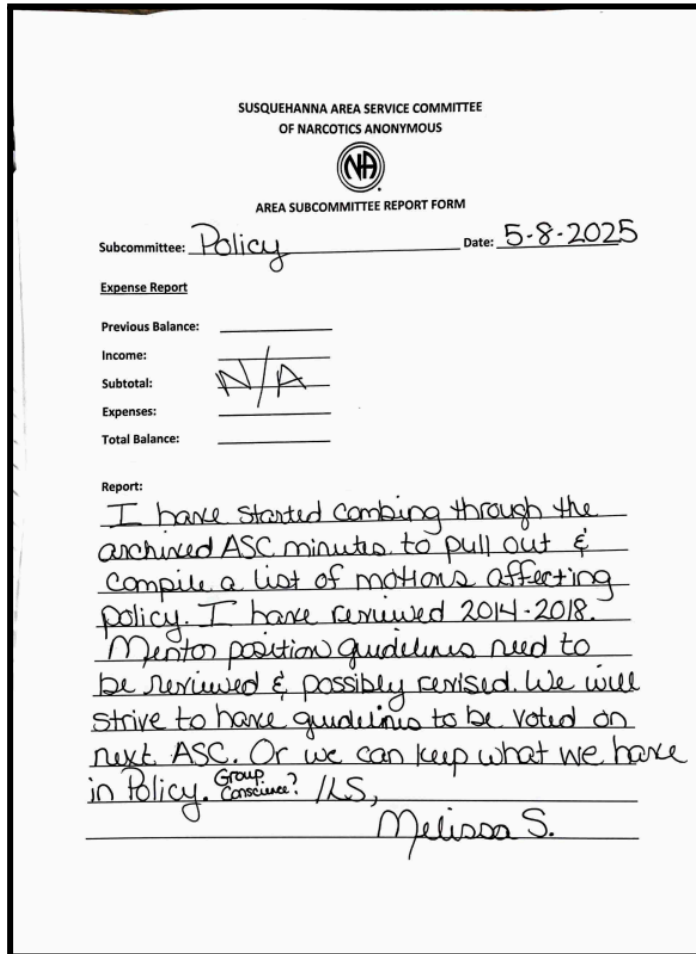 SUSQUEHANNA AREA SERVICE COMMITTEE
OF NARCOTICS ANONYMOUS
NA
AREA SUBCOMMITTEE REPORT FORM
Subcommittee: Policy Date: 5-8-2025
Expense Report
Previous Balance:
Income:
Subtotal: N/A
Expenses:
Total Balance:
Report:
I have started combing through the
archived ASC minutes to pull out &
compile a list of motions affecting
policy. I have reviewed 2014-2018.
Mentor position guidelines need to
be reviewed & possibly revised. We will
strive to have guidelines to be voted on
next ASC. Or we can keep what we have
in Policy. Group Conscience? ILS,
Melissa S.